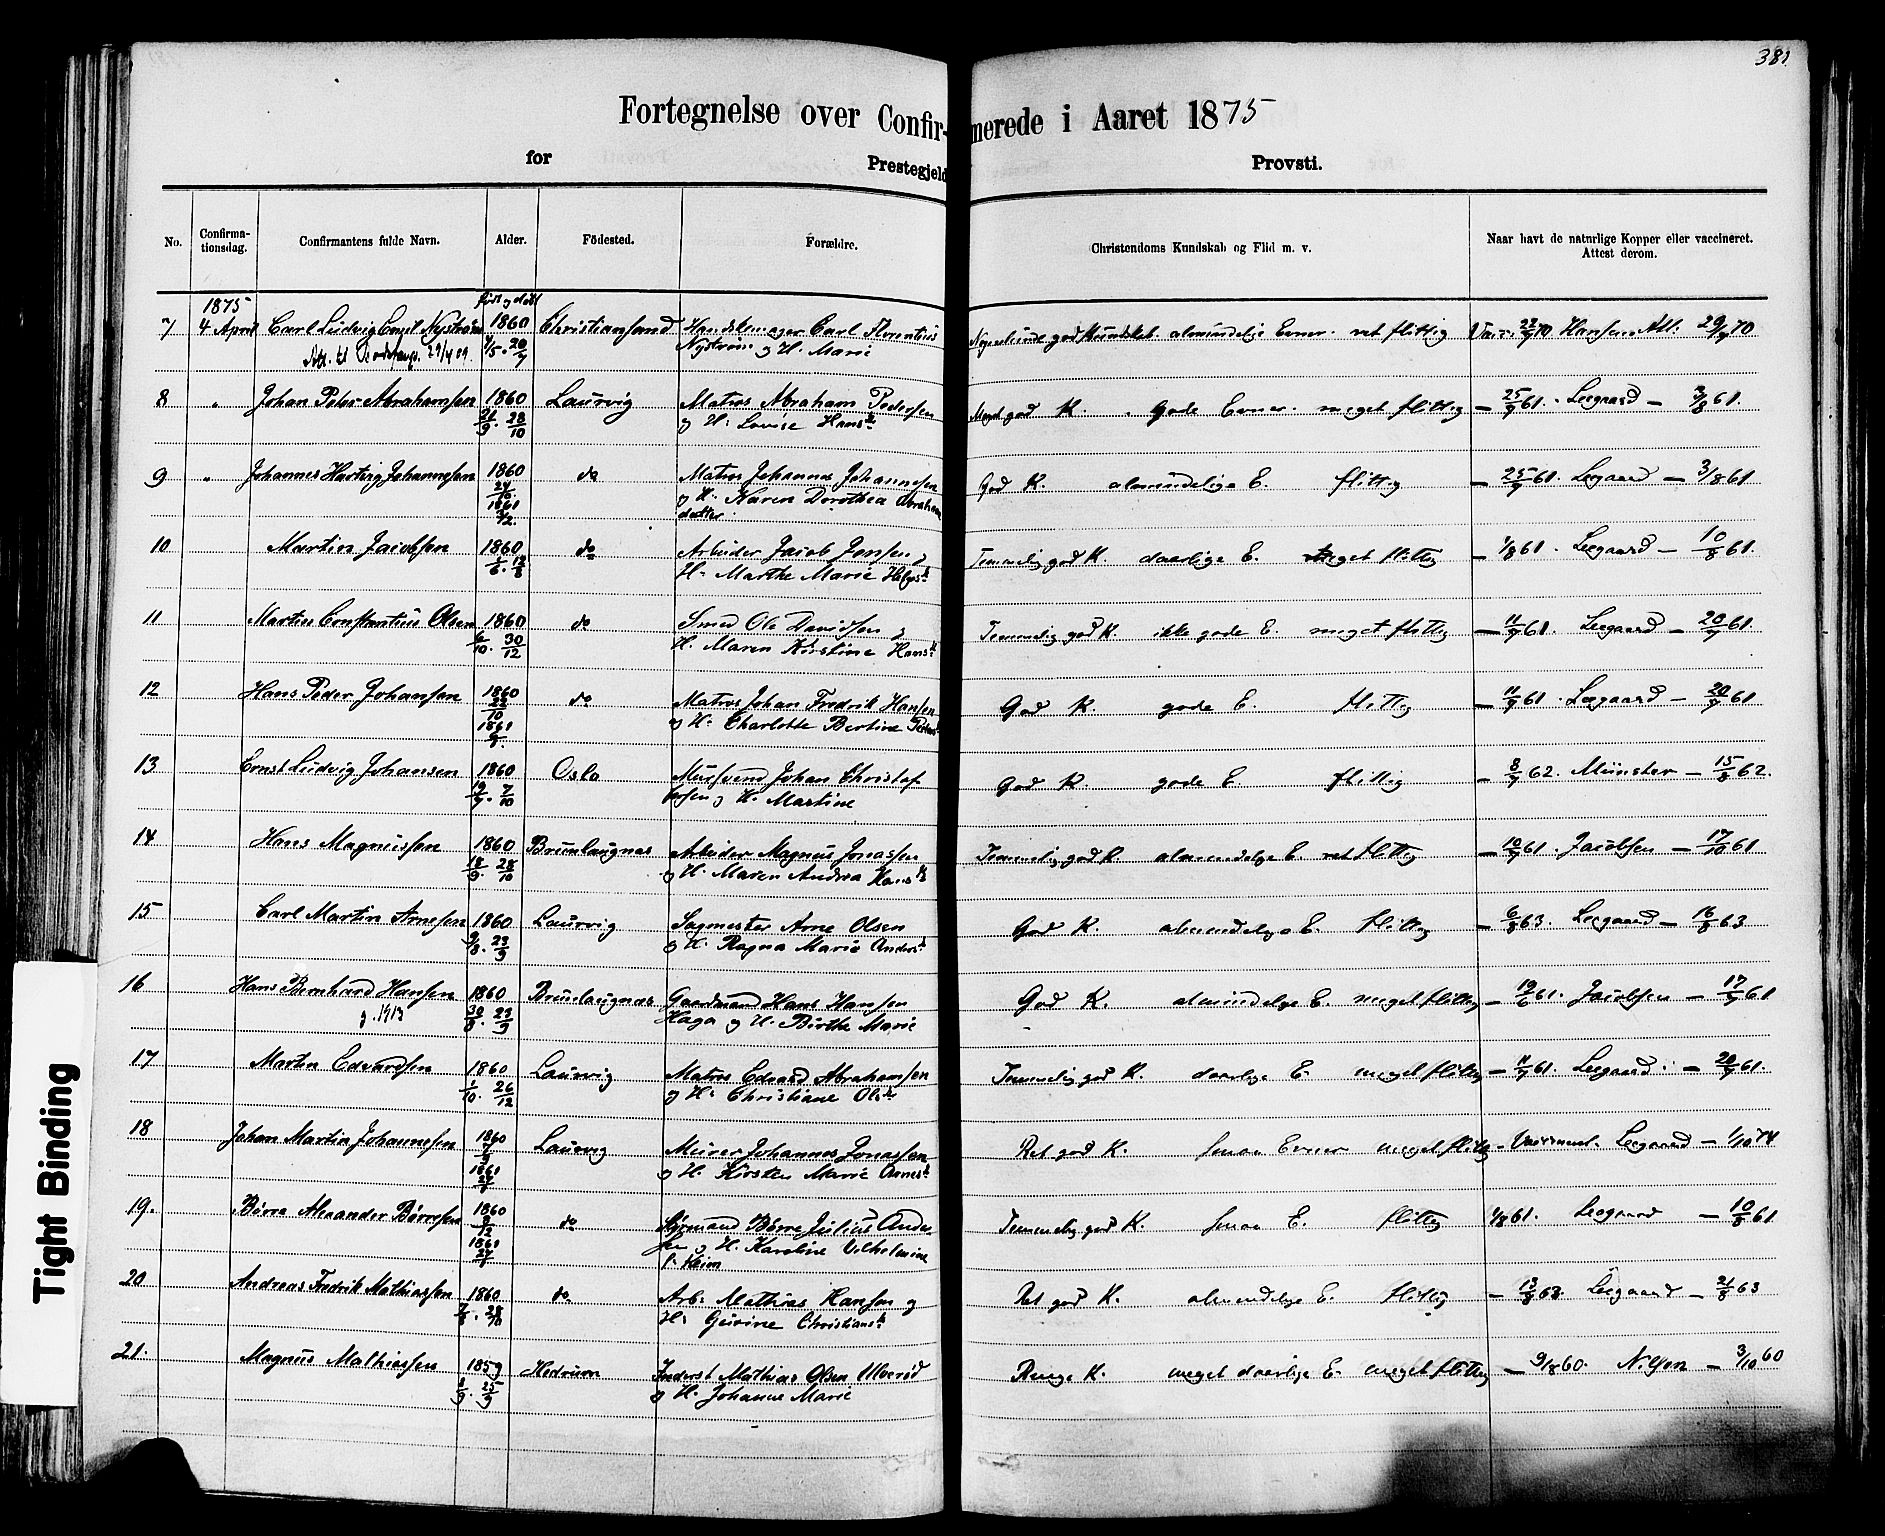 381.
Fortegnelse over Confirmerede i Aaret 1875
for Prestegjeld Provsti.
No. Confirmationsdag. Confirmantens fulde Navn. Alder. Födested. Forældre. Christendoms Kundskab og Flid m. v. Naar havt de naturlige Kopper eller vaccineret. Attest derom.
1875 født og døbt
7 4 April Carl Ludvig Emil Nystrøm 1860 Christiansand Handskemager Carl Florentius god Kundskab almindelige Evner. ret flittig Hansen Att. 29/9 70
29/4 09. 1/5. 20/7 Nystrøm og H. Marie
8 " Johan Peter Abrahamsen 1860 Laurvig Matros Abraham Pedersen Meget god K. Gode Evner. meget flittig — 25/7 61. Leegaard — 3/8 61.
21/9. 28/10 og H. Lovise Hansd.
9 " Johannes Hartvig Johannesen 1860 do Matros Johannes Johannesen God K. almindelige E. flittig — 25/7 61. Leegaard — 3/8 61
24/10 1861 3/2. og H. Karen Dorothea Abrahams
datter
10 Martin Jacobsen 1860 do Arbeider Jacob Jensen og Temmelig god K. daarlige E. meget flittig — 1/8 61. Leegaard — 10/8 61.
1/6. 12/8 H. Marthe Marie Helgesd.
11 Martin Constantius Olsen 1860 do Smed Ole Davidsen og Temmelig god K. ikke gode E. meget flittig — 11/7 61. Leegaard — 20/7 61.
6/10. 30/12 H. Maren Kirstine Hansd.
12 Hans Peder Johansen 1860 do Matros Johan Fredrik Hansen God K. gode E. flittig — 11/7 61. Leegaard — 20/7 61
22/10 1861 og H. Charlotte Bertine
13 Ernst Ludvig Johansen 1860 Oslo Muursvend Johan Christof God K. gode E. flittig — 8/7 62. Münster — 15/8 62.
19/7. 7/10 fersen og H. Martine
14 Hans Magnussen 1860 Brunlaugnæs Arbeider Magnus Jonassen Temmelig god K. almindelige E. ret flittig — 10/7 61. Jacobsen — 17/10 61
18/9. 28/10 og H. Maren Andrea Hansd.
15 Carl Martin Arnesen 1860 Laurvig Sagmester Arne Olsen God K. almindelige E. flittig — 6/8 63. Leegaard — 16/8 63
9/8. 23/9 og H. Ragna Marie Andersd.
16 Hans Bernhard Hansen 1860 Brunlaugnæs Gaardmand Hans Hansen God K. almindelige E. meget flittig — 19/6 61. Jacobsen — 17/7 61
g. 1913 30/8. 23/9 Haga og H. Birthe Marie
17 Martin Edvardsen 1860 Laurvig Matros Edvard Abrahamsen Temmelig god K. daarlige E. meget flittig — 11/7 61. Leegaard. — 20/7 61.
1/10. 26/12 og H. Christiane Olsd.
18 Johan Martin Johannesen 1860 Laurvig Murer Johannes Jonassen Ret god K. smaa Evner meget flittig — Leegaard — 1/10 74
1861 og H. Kirsten Marie
19. Børre Alexander Børresen 1860 do Styrmand Børre Julius Ander- Temmelig god K. smaa E. flittig 1/8 61. Leegaard — 10/8 61
9/12 1861 sen og H. Karoline Vilhelmine
f. Heim
20 Andreas Fredrik Mathiassen 1860 do. Arb. Mathias Hansen og Ret god K. almindelige E. flittig — 13/8 63. Leegaard — 21/8 63
28/10 H. Gurine Christiansd.
21. Magnus Mathiassen 1859 Hedrum Inderst Mathias Olsen Ringe K. meget daarlige E. meget flittig — 9/8 60. Nilsen — 3/10 60
25/9 og H. Johanne Marie
Tight Binding